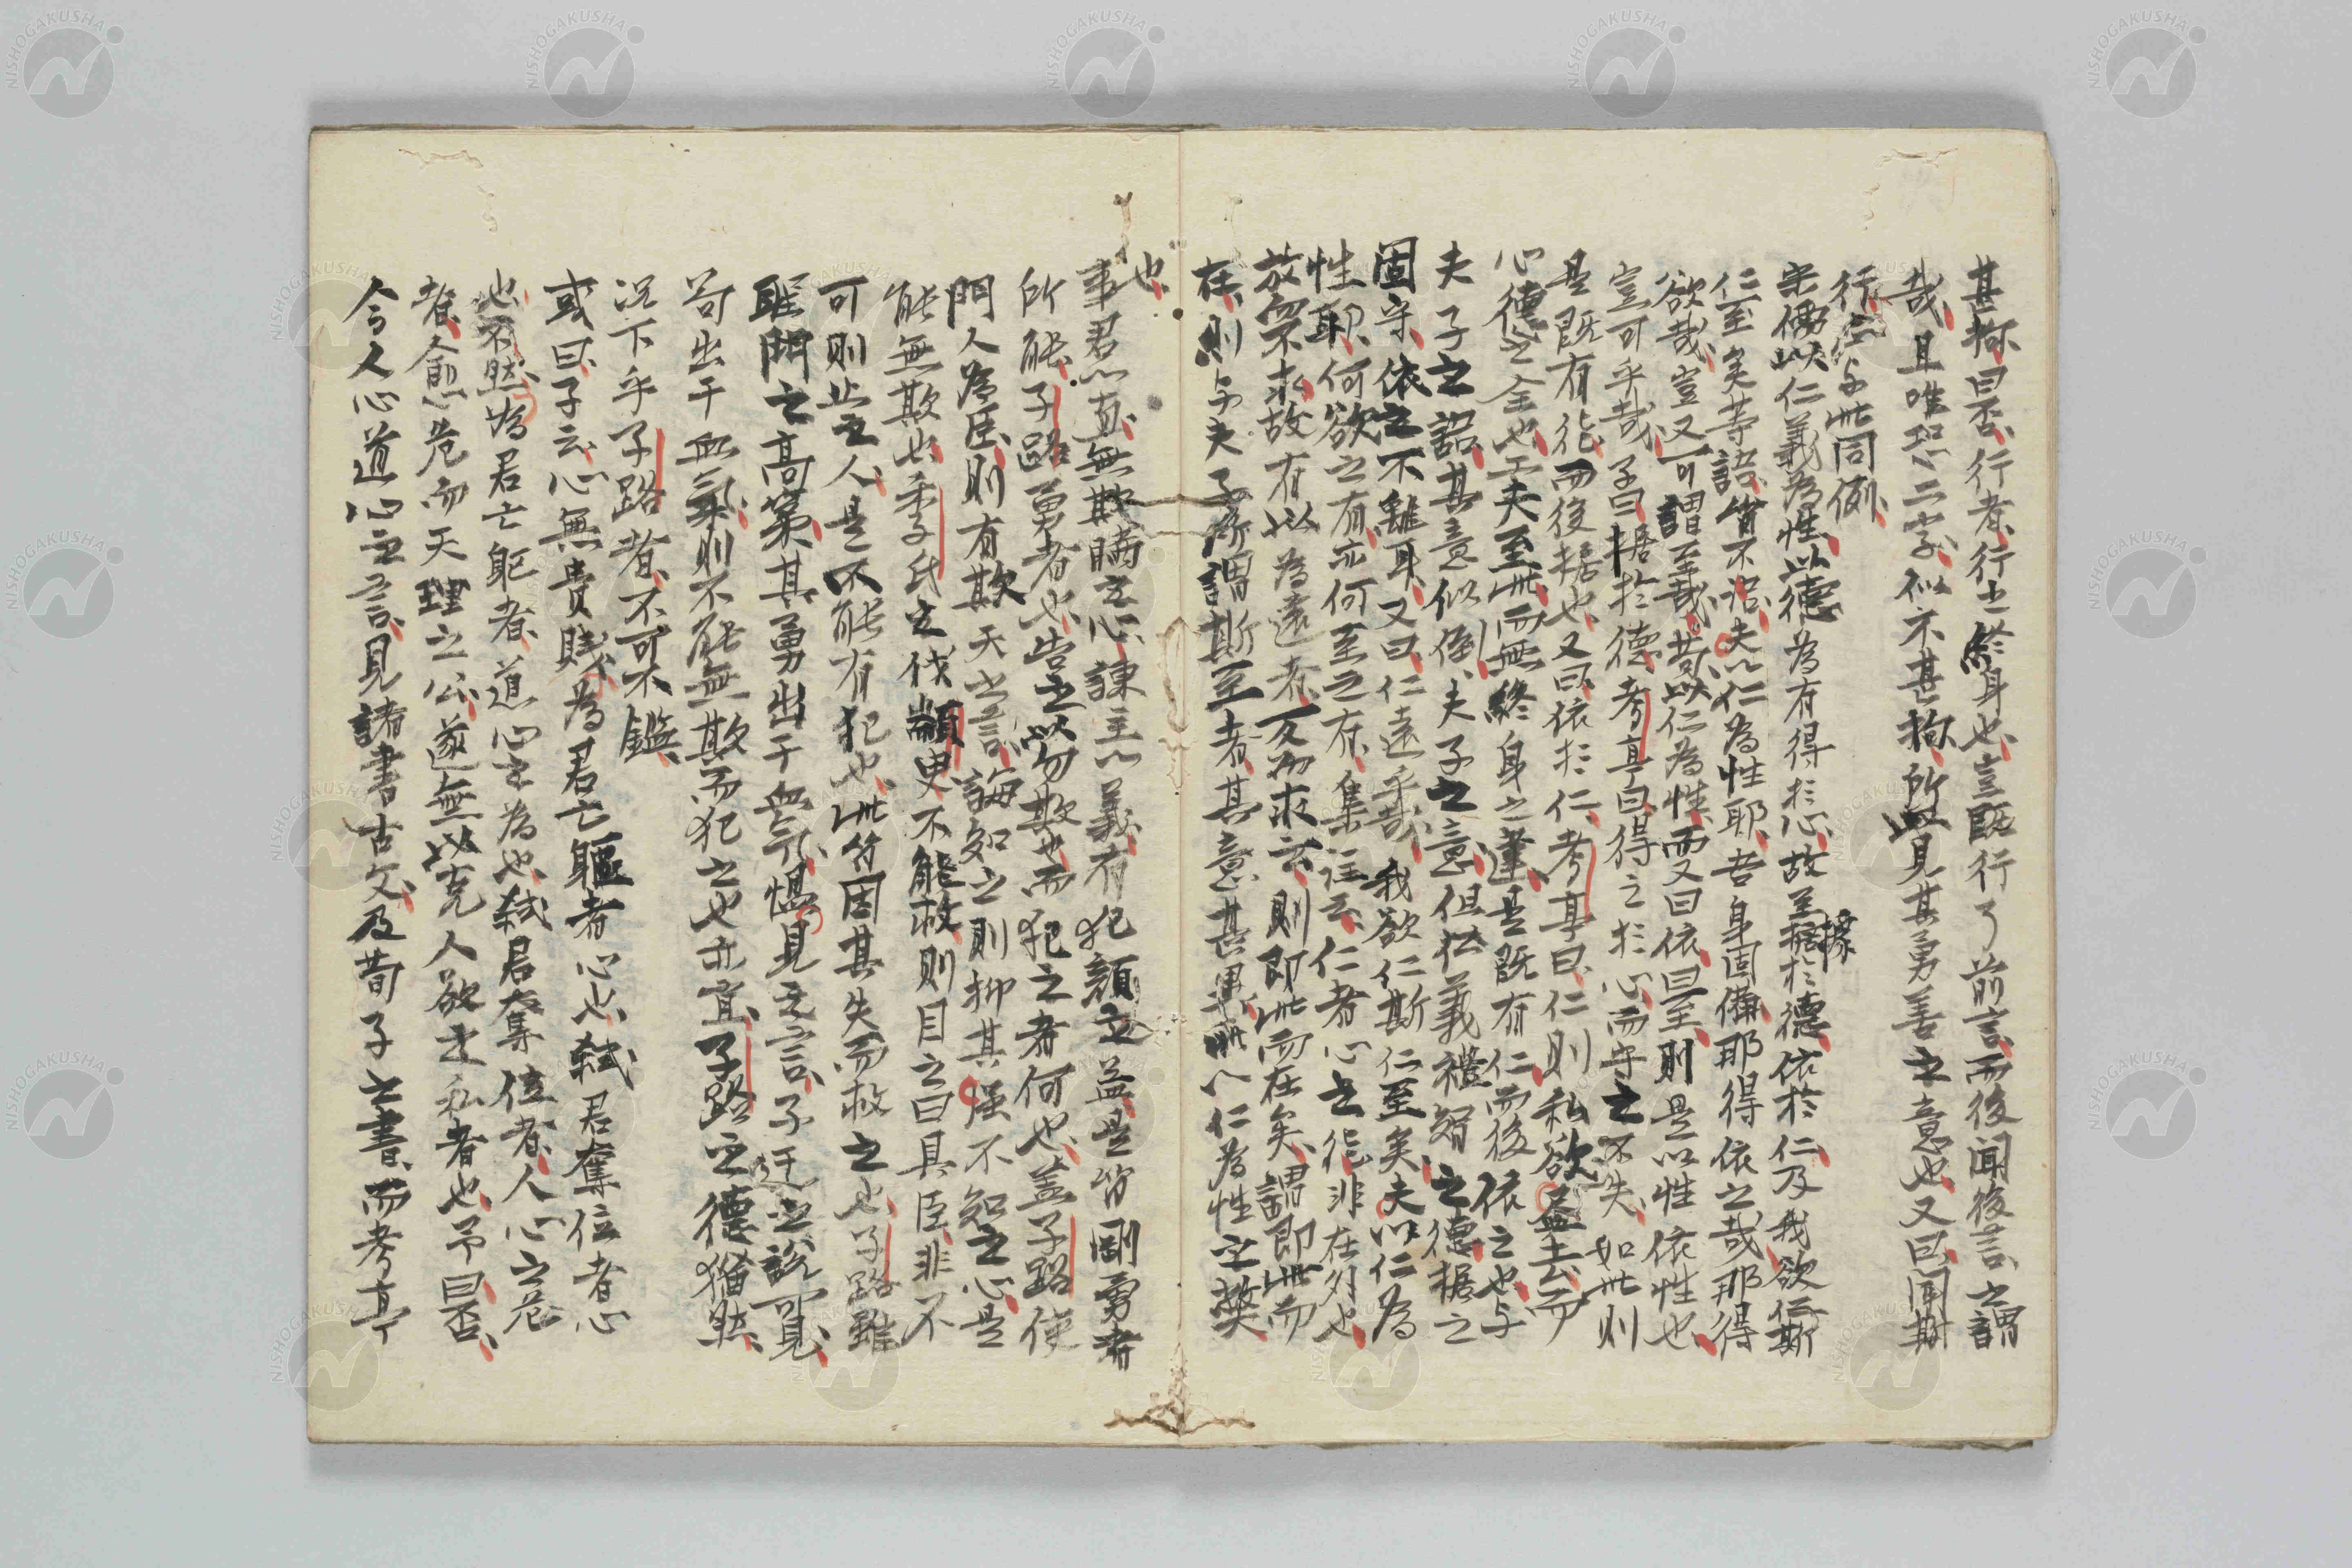 甚拘曰否行者行之終身也豈既行了前言而後聞後言之謂
哉且唯恐二字似不甚拘所以見其勇善之意也又曰聞斯
行之与此同例
宋儒以仁義為性以德為有得於心故至據於德依於仁及我欲仁斯
據
仁至矣等語皆不沿夫以仁為性耶吾身固備耶得依之哉那得
欲哉豈又可謂至哉苟以仁為性而又曰依曰至則是以性依性也
豈可乎哉子曰據於德考亭曰得之於心而守之不失如此則
是既有徳而後據也又曰依於仁考亭曰仁則私欲尽去而
心德之全也工夫至此而無終身之違是既有仁而後依之也与
夫子之語其意似倒夫子之意但仏義禮智之德據之
固守依之不離耳又曰仁遠乎哉我欲仁斯仁至矣夫以仁為
性耶何欲之有亦何至之有集註云仁者心之徳非在外也
放而不求故有以為遠者反而求云則即此而在矣謂即此而
在則与夫子所謂斯至者其意甚異此以仁為性之弊
也
事君以直無欺瞞之心諫主以義有犯顔之益是皆剛勇者
所能子路勇者也告之以勿欺也而犯之者何也蓋子路使
門人為臣則有欺天之言誨知之則抑其强不知之心是
能無欺也季氏之伐顓臾不能救則目之曰具臣非不
可則止之人是不能有犯也此皆因其失而救之也子路雖
聖門之高弟其勇出于血氣慍見之言子迂之說可見
苟出于血氣則不能無欺而犯之也亦宜子路之德猶然
況下乎子路者不可不鑑
或曰子云心無貴賤為君亡軀者心也弑君奪位者心
也不然為君亡軀者道心之為也弑君奪位者人心之危
者愈危而天理之公遂無以克人欲之私者也予曰否
今人心道心之言見諸書古文及荀子之書而考亭